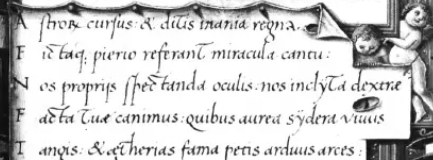 A strorꝝ cursus: & ditis inania regna.
F ictaq; pierio referant miracula cantu:
N os propriis spectanda oculis: nos inclyta dexterae
F acta tuae canimus: quibus aurea sydera vivus
T angis: & aetherias fama petis arduus arces: